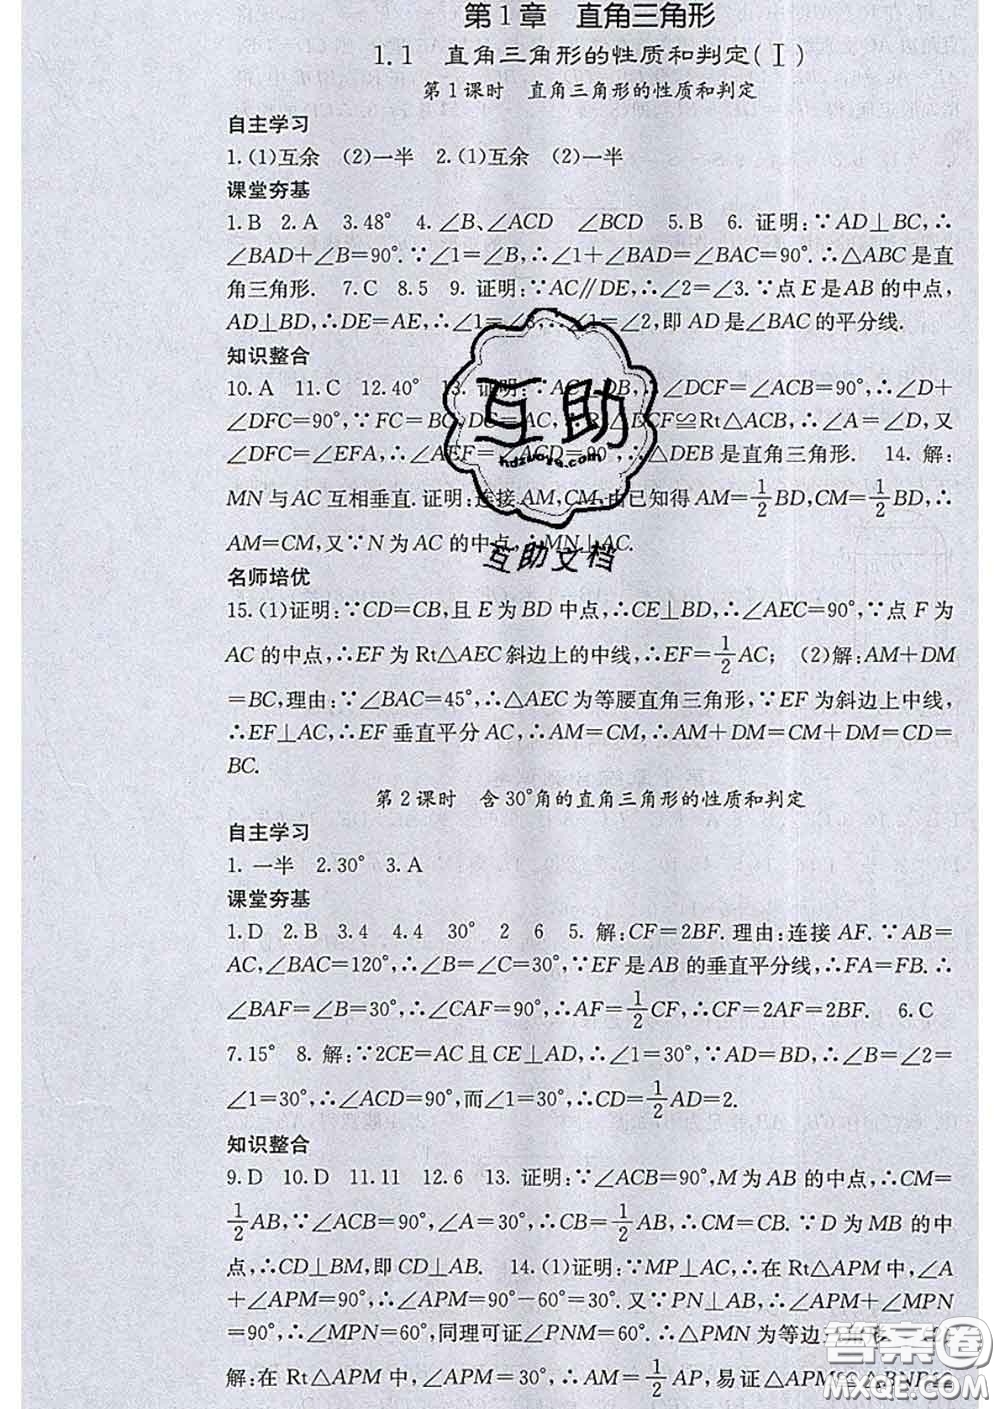 第1章 直角三角形
1.1 直角三角形的性质和判定(Ⅰ)
第1课时 直角三角形的性质和判定
自主学习
1.(1)互余 (2)一半 2.(1)互余 (2)一半
课堂夯基
1.B 2.A 3.48° 4.∠B、∠ACD ∠BCD 5.B 6.证明:∵AD⊥BC,∴
∠BAD+∠B=90°.∵∠1=∠B,∴∠1+∠BAD=∠BAC=90°.∴△ABC是直
角三角形. 7.C 8.5 9.证明:∵AC∥DE,∴∠2=∠3.∵点E是AB的中点,
AD⊥BD,∴DE=AE,∴∠1=∠3,∴∠1=∠2,即AD是∠BAC的平分线.
知识整合
10.A 11.C 12.40° 13.证明:∵AC DB,∴∠DCF=∠ACB=90°,∴∠D+
∠DFC=90°,∵FC=BC,DC=AC,∴Rt△DCF≌Rt△ACB,∴∠A=∠D,又
∠DFC=∠EFA,∴∠AEF=∠ACD=90°,∴△DEB是直角三角形. 14.解:
MN与AC互相垂直.证明:连接AM,CM,由已知得AM=1/2BD,CM=1/2BD,∴
AM=CM,又∵N为AC的中点,∴MN⊥AC.
互助
hdzuoye.com
互助文档
名师培优
15.(1)证明:∵CD=CB,且E为BD中点,∴CE⊥BD,∴∠AEC=90°,∵点F为
AC的中点,∴EF为Rt△AEC斜边上的中线,∴EF=1/2AC; (2)解:AM+DM
=BC,理由:∵∠BAC=45°,∴△AEC为等腰直角三角形,∵EF为斜边上中线,
∴EF⊥AC,∴EF垂直平分AC,∴AM=CM,∴AM+DM=CM+DM=CD=
BC.
第2课时 含30°角的直角三角形的性质和判定
自主学习
1.一半 2.30° 3.A
课堂夯基
1.D 2.B 3.4 4.4 30° 2 6 5.解:CF=2BF.理由:连接AF.∵AB=
AC,∠BAC=120°,∴∠B=∠C=30°,∵EF是AB的垂直平分线,∴FA=FB.∴
∠BAF=∠B=30°,∴∠CAF=90°,∴AF=1/2CF,∴CF=2AF=2BF. 6.C
7.15° 8.解:∵2CE=AC且CE⊥AD,∴∠1=30°,∵AD=BD,∴∠B=∠2=
∠1=30°,∴∠ACD=90°,而∠1=30°,∴CD=1/2AD=2.
知识整合
9.D 10.D 11.11 12.6 13.证明:∵∠ACB=90°,M为AB的中点,∴CM=
1/2AB,∵∠ACB=90°,∠A=30°,∴CB=1/2AB,∴CM=CB.∵D为MB的中
点,∴CD⊥BM,即CD⊥AB. 14.(1)证明:∵MP⊥AC,∴在Rt△APM中,∠A
+∠APM=90°,∴∠APM=90°-60°=30°.又∵PN⊥AB,∴∠APM+∠MPN
=90°,∴∠MPN=60°,同理可证∠PNM=60°.∴△PMN为等边三角形
解:在Rt△APM中,∠APM=30°,∴AM=1/2AP,易证△APM≌△BNP≌
答案圈
MXQE.COM